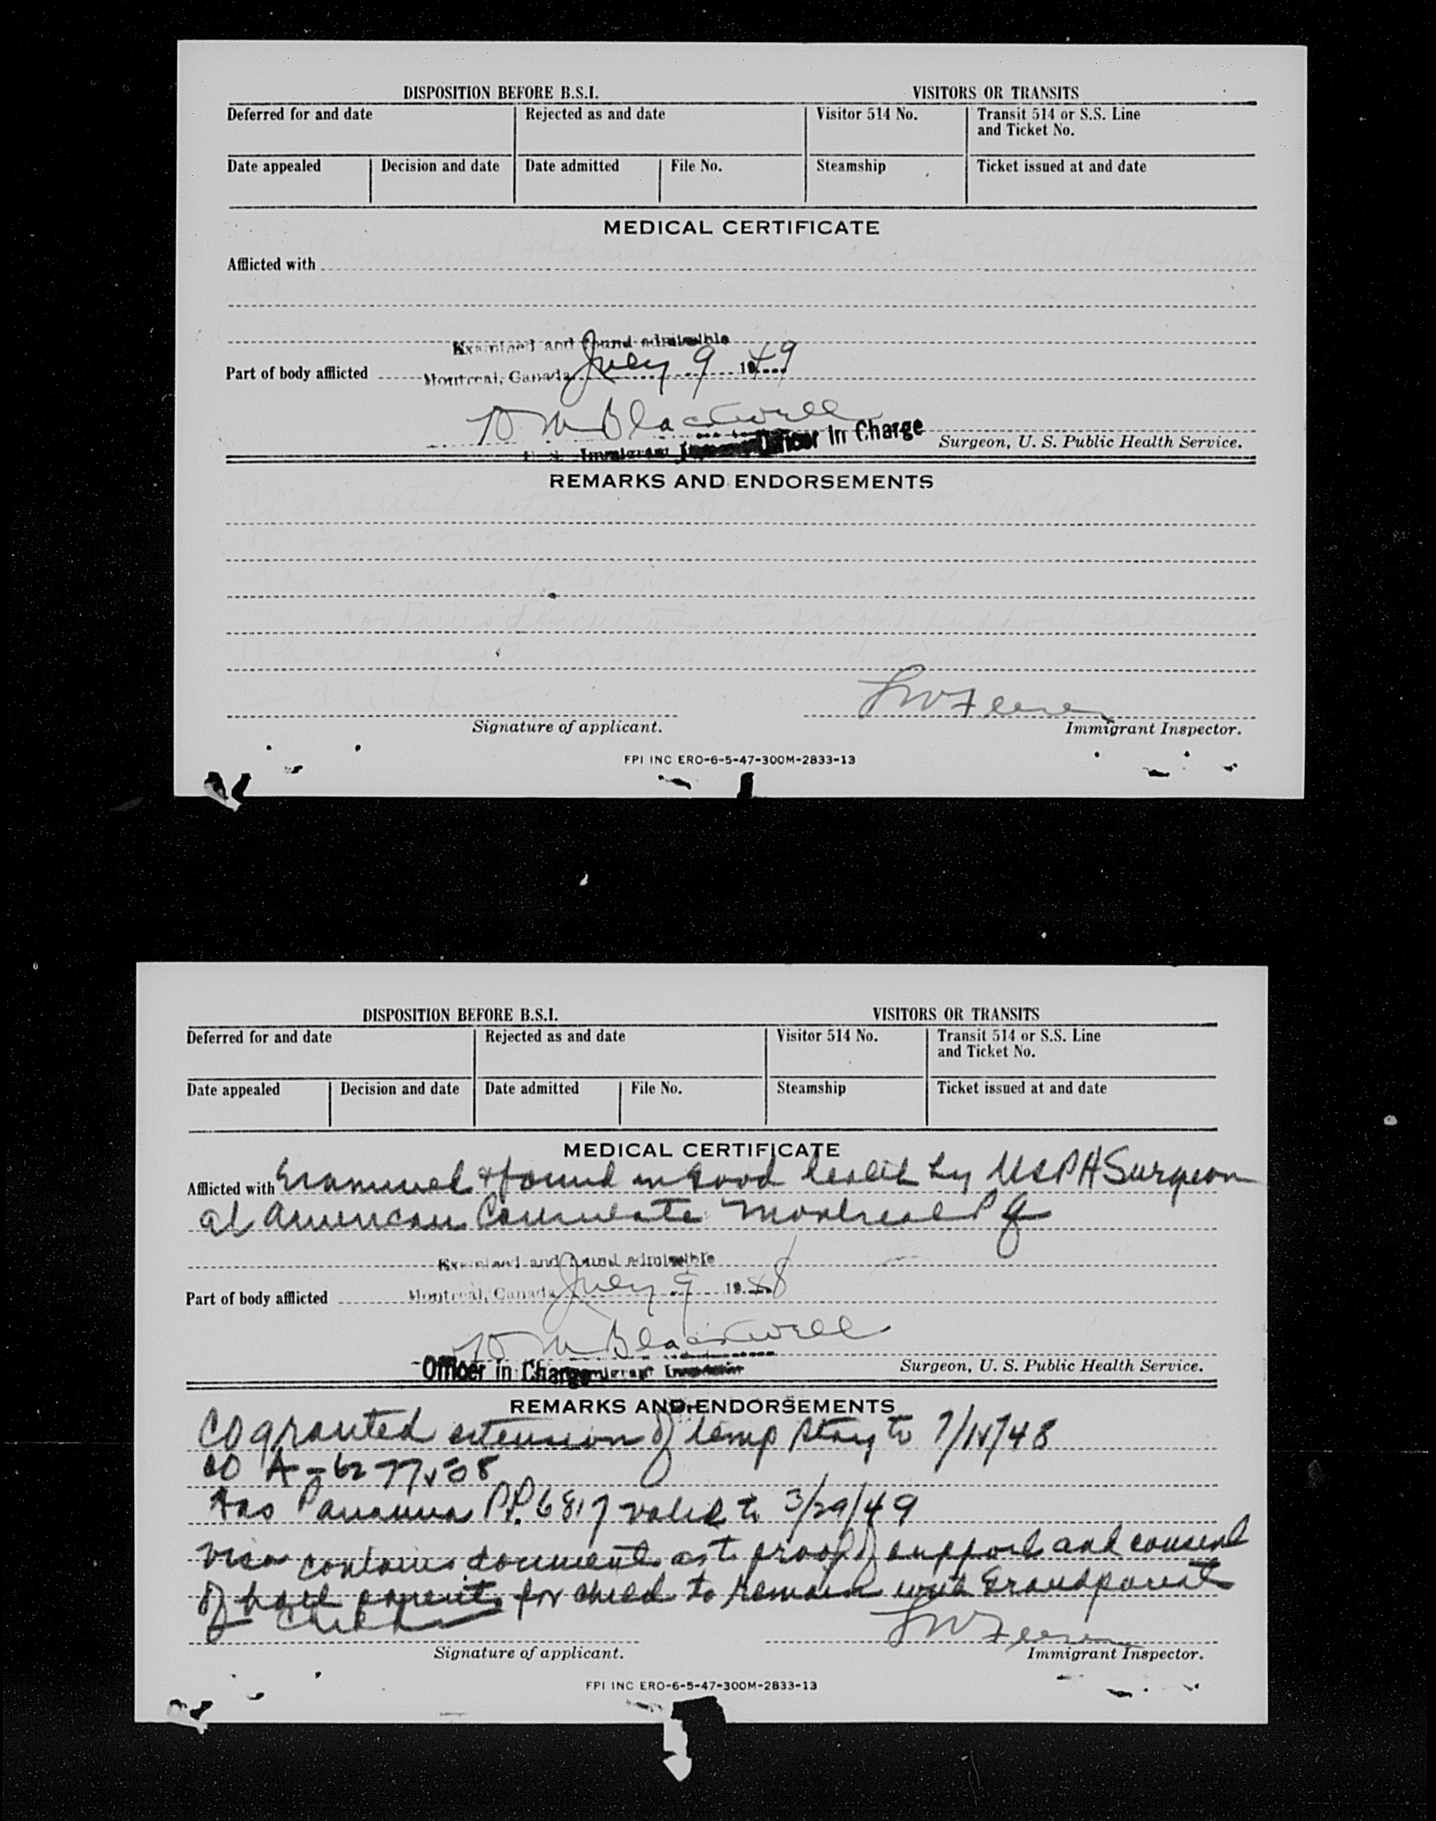 DISPOSITION BEFORE B.S.I. VISITORS OR TRANSITS
Deferred for and date Rejected as and date Visitor 514 No. Transit 514 or S.S. Line and Ticket No.
Date appealed Decision and date Date admitted File No. Steamship Ticket issued at and date
MEDICAL CERTIFICATE
Afflicted with
Examined and found admissible
Part of body afflicted Montreal, Canada July 9 1949
Blackwell
U. S. Immigrant Officer in Charge Surgeon, U. S. Public Health Service.
REMARKS AND ENDORSEMENTS
Signature of applicant. Immigrant Inspector.
FPI INC ERO-6-5-47-300M-2833-13
DISPOSITION BEFORE B.S.I. VISITORS OR TRANSITS
Deferred for and date Rejected as and date Visitor 514 No. Transit 514 or S.S. Line and Ticket No.
Date appealed Decision and date Date admitted File No. Steamship Ticket issued at and date
MEDICAL CERTIFICATE
Afflicted with Examined & found in good health by USPH Surgeon
at American Consulate Montreal P Q
Examined and found admissible
Part of body afflicted Montreal, Canada July 9 1948
Blackwell
Officer in Charge Immigrant Inspector Surgeon, U. S. Public Health Service.
REMARKS AND ENDORSEMENTS
CO granted extension of temp stay to 7/ /48
CO
Has Panama P.P. 6817 valid to 3/29/49
Visa contains documents as to proof of support and consent
of both parents for child to remain with Grandparents
Signature of applicant. Immigrant Inspector.
FPI INC ERO-6-5-47-300M-2833-13